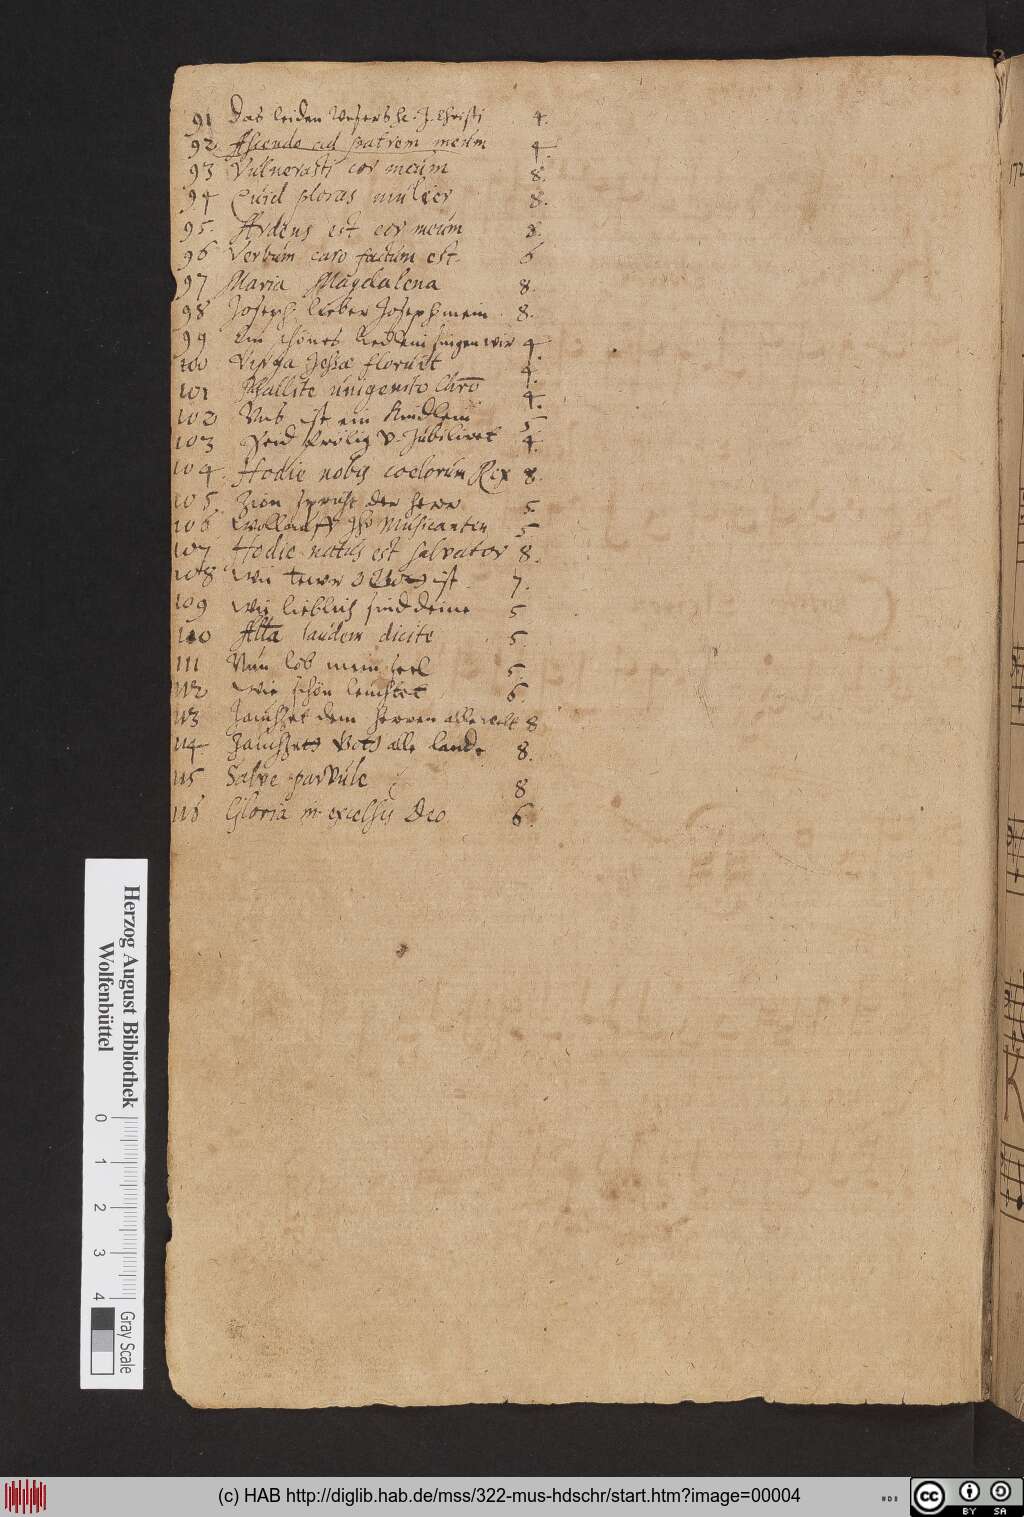 91 Das leiden Unsers h. J. Christi 4.
92 Ascendo ad patrem meum 4.
93 Vulnerasti cor meum 8.
94 Quid ploras mulier 8.
95. Ardens est cor meum 8.
96 Verbum caro factum est. 6
97 Maria Magdalena 8.
98 Joseph lieber Joseph mein 8.
99 Ein schönes Kindlein singen wir 4.
100 Virga Jessæ floruit 4.
101 Psallite unigenito Chro 4.
102 Uns ist ein Kindlein 5
103 Seid frölig v. Jubiliret 4.
104. Hodie nobis coelorum Rex 8.
105 Zion spricht der herr 5
106 Wollauff Ihr Musicanten 5
107 Hodie natus est salvator 8.
108 Wie tewr ist 7.
109 Wie lieblich sind deine 5
110 Alta laudem dicite 5.
111 Nun lob mein seel 5.
112 Wie schön leuchtet 6
113 Jauchzet dem Herren alle welt 8
114 Jauchzet Gott alle lande 8.
115 Salve parvule 8
116 Gloria in excelsis Deo 6.
Herzog August Bibliothek
Wolfenbüttel
0 1 2 3 4
Gray Scale
(c) HAB http://diglib.hab.de/mss/322-mus-hdschr/start.htm?image=00004
HAB
cc BY SA